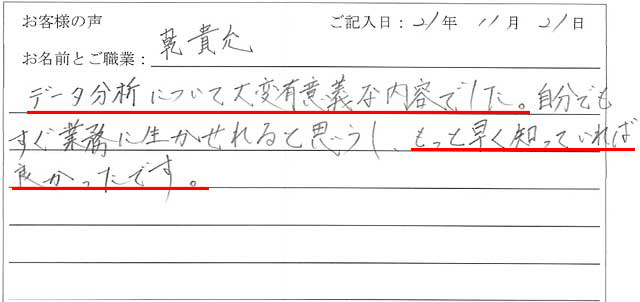 お客様の声 ご記入日：21年 11月 21日
お名前とご職業：乾 貴允
データ分析について大変有意義な内容でした。自分でも
すぐ業務に生かせれると思うし、もっと早く知っていれば
良かったです。